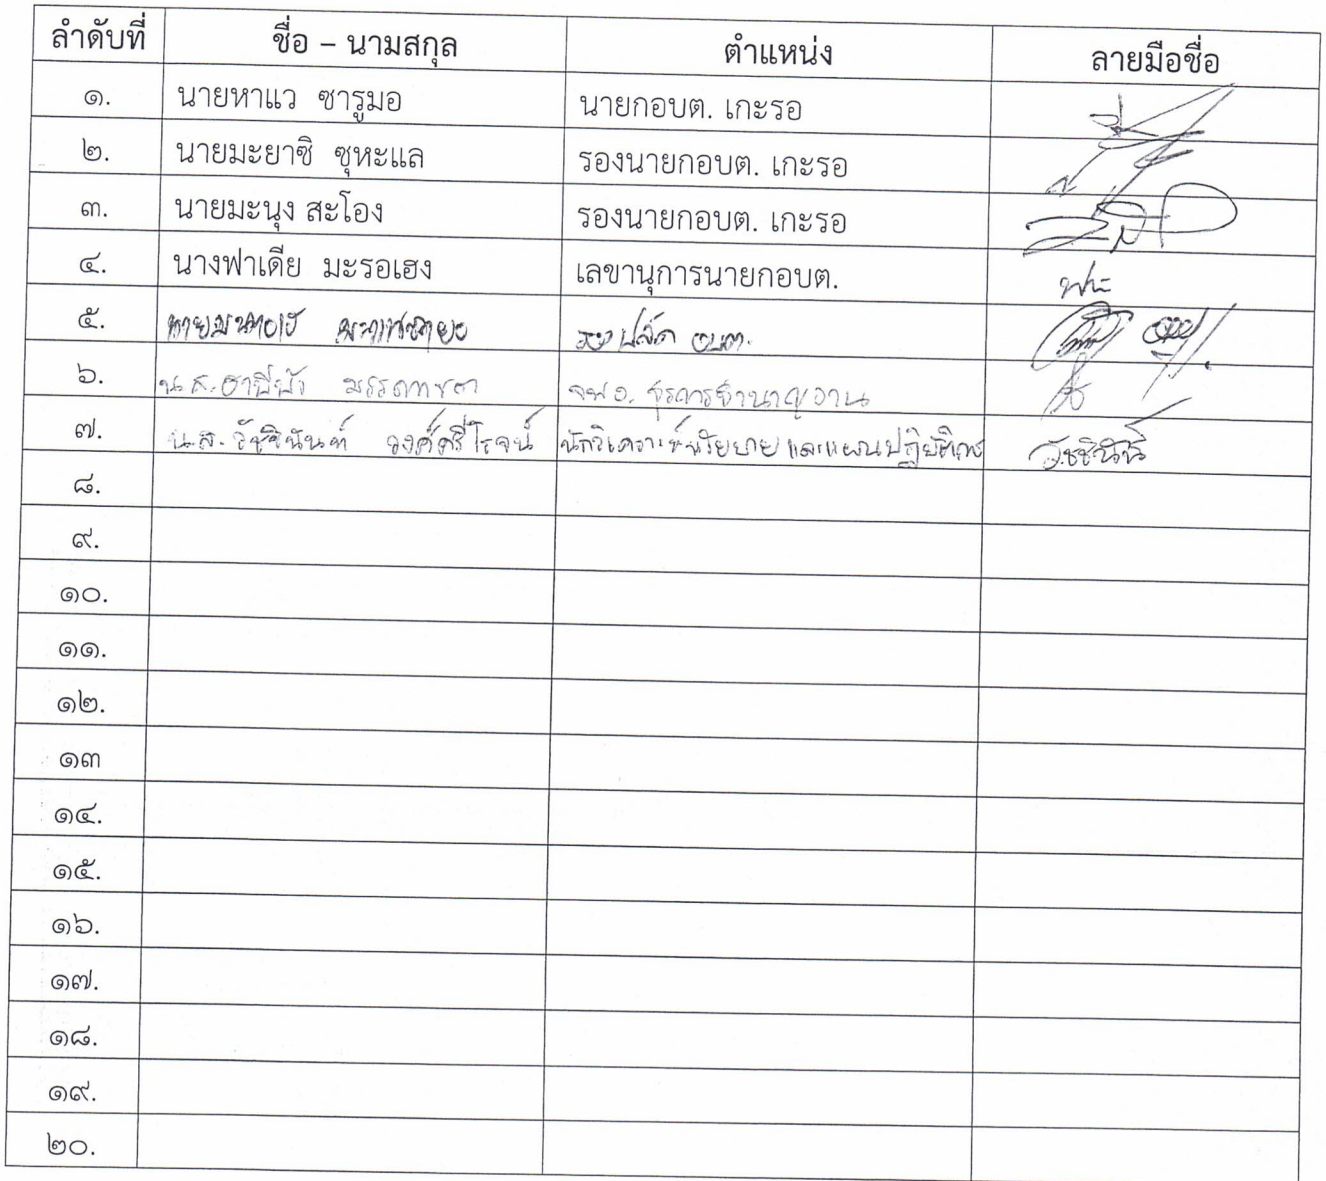 ลำดับที่ ชื่อ – นามสกุล ตำแหน่ง ลายมือชื่อ
๑. นายหาแว ซารูมอ นายกอบต. เกะรอ
๒. นายมะยาซิ ซุหะแล รองนายกอบต. เกะรอ
๓. นายมะนุง สะโอง รองนายกอบต. เกะรอ
๔. นางฟาเดีย มะรอเฮง เลขานุการนายกอบต.
๕. รองปลัด อบต.
๖. น.ส. จพง. ธุรการชำนาญงาน
๗. น.ส. วัชชินันท์ วงศ์ศรีโรจน์ นักวิเคราะห์นโยบายและแผนปฏิบัติการ
๘.
๙.
๑๐.
๑๑.
๑๒.
๑๓
๑๔.
๑๕.
๑๖.
๑๗.
๑๘.
๑๙.
๒๐.